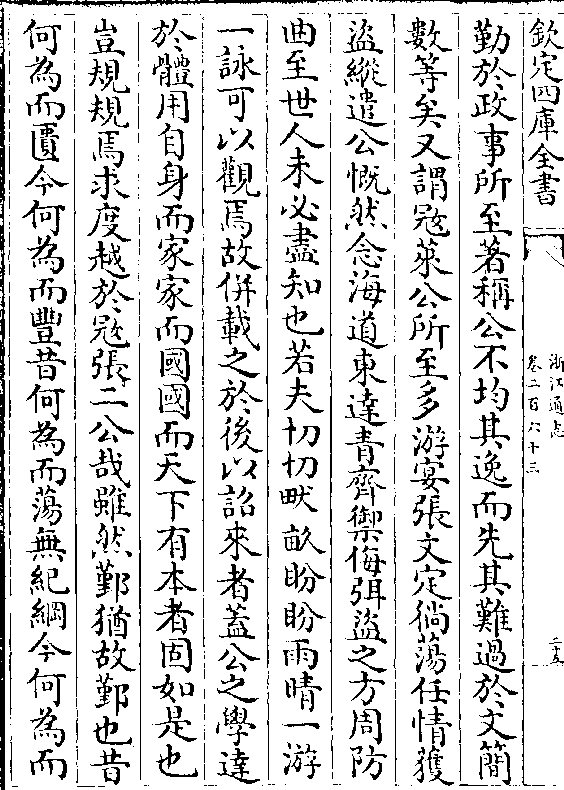 欽定四庫全書
浙江通志
卷二百六十三
二十五
勤於政事所至著稱公不均其逸而先其難過於文簡
數等矣又謂冦萊公所至多游宴張文定徜蕩任情獲
盜縱遣公慨然念海道東達青齊禦侮弭盜之方周防
曲至世人未必盡知也若夫切切畎畝盼盼雨晴一游
一詠可以觀焉故併載之於後以詔來者蓋公之學達
於體用自身而家家而國國而天下有本者固如是也
豈規規焉求度越於冦張二公哉雖然鄞猶故鄞也昔
何為而匱今何為而豐昔何為而蕩無紀綱今何為而